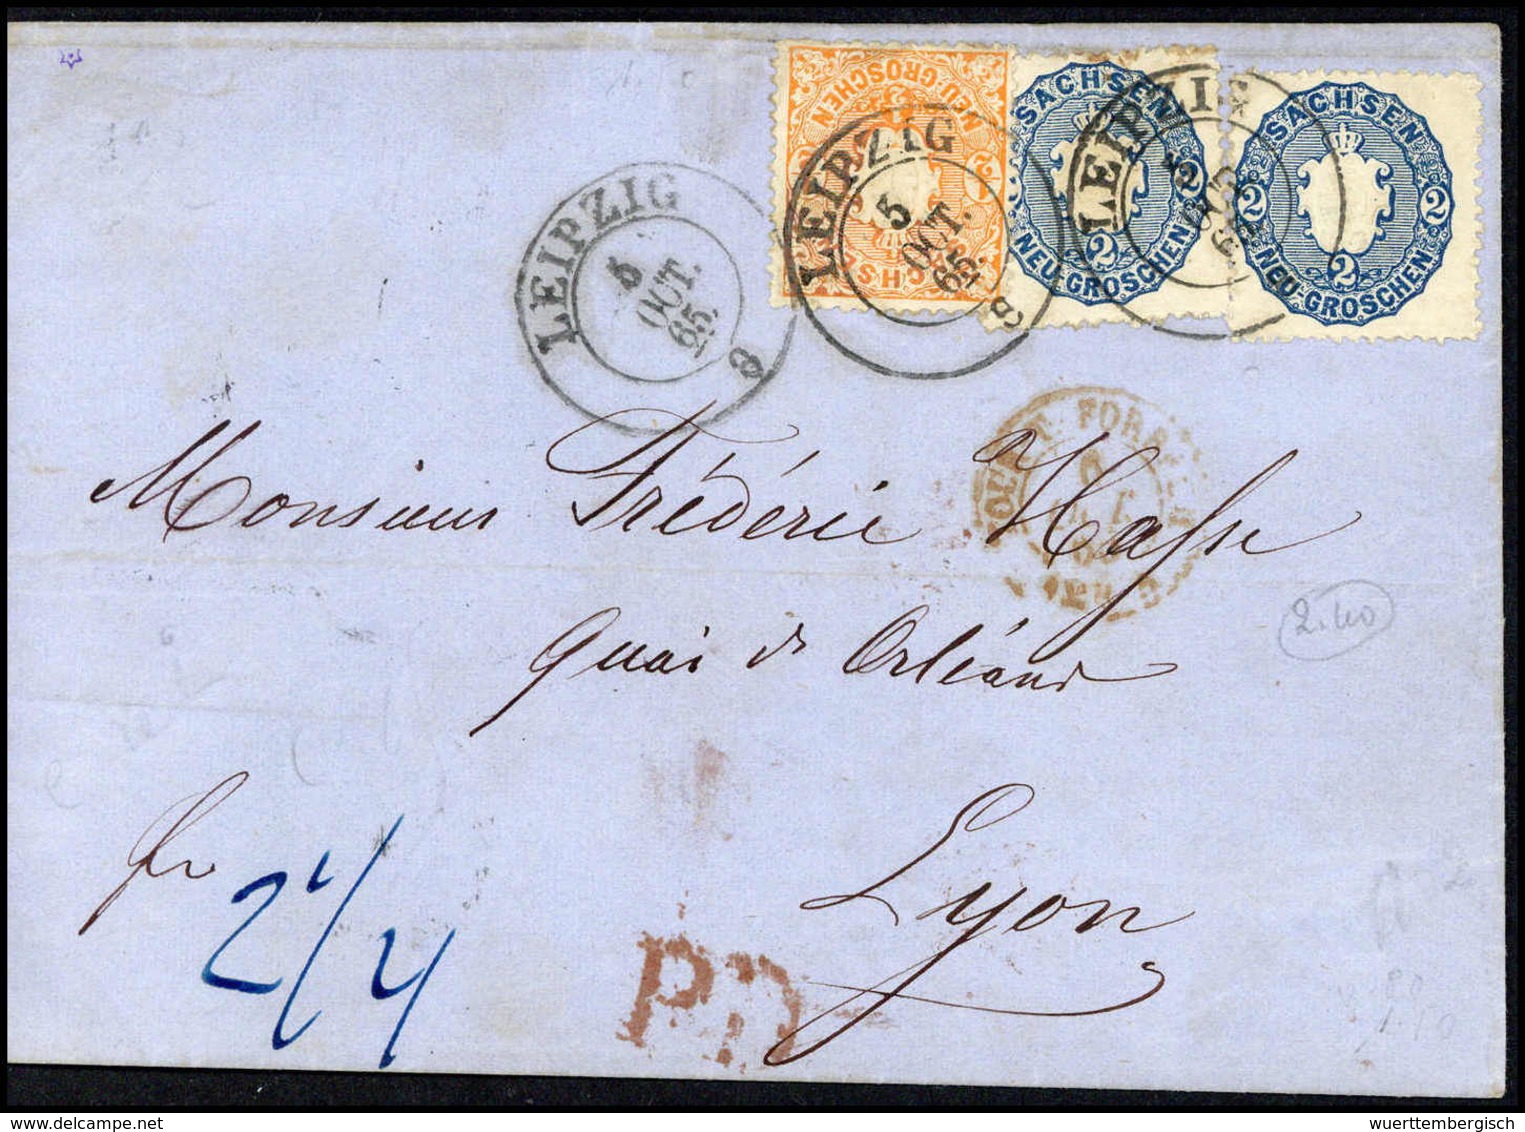 NEU-GROSCHEN
SACHSEN
2 2
2
NEU-GROSCHEN
SACHSEN
2 2
2
NEU-GROSCHEN
LEIPZIG
5
OCT.
65.
LEIPZIG
5
OCT.
65.
LEIPZIG
5
Monsieur Frédéric Hasse
Quai de Orléans
2.40
Lyon
fr
2 1/4
P.D.
wuerttembergisch